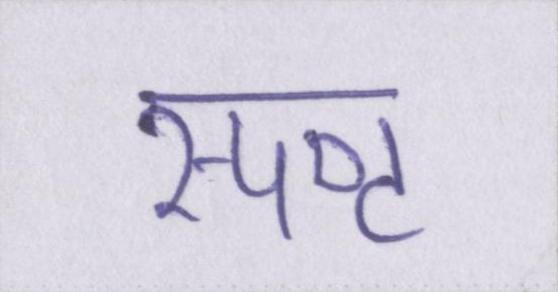 स्पष्ट